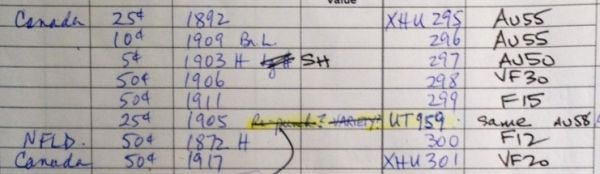 Value
Canada 25¢ 1892 XHU 295 AU55
10¢ 1909 Br.L. 296 AU55
5¢ 1903 H SH 297 AU50
50¢ 1906 298 VF30
50¢ 1911 299 F15
25¢ 1905 Re-punch? VARIETY? UT959 same AU58
NFLD. 50¢ 1872 H 300 F12
Canada 50¢ 1917 XHU 301 VF20